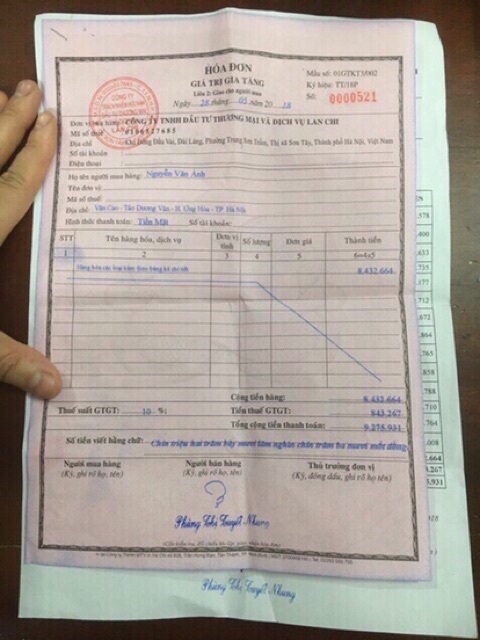 HÓA ĐƠN
GIÁ TRỊ GIA TĂNG
Liên 2: Giao cho người mua
Ngày 28 tháng 05 năm 2018
Mẫu số: 01GTKT3/002
Ký hiệu: TT/18P
Số: 0000521
Đơn vị bán hàng: CÔNG TY TNHH ĐẦU TƯ THƯƠNG MẠI VÀ DỊCH VỤ LAN CHI
Mã số thuế
Địa chỉ Thị xã Sơn Tây, Thành phố Hà Nội, Việt Nam
Số tài khoản
Điện thoại
Họ tên người mua hàng: Nguyễn Vân Anh
Tên đơn vị:
Mã số thuế:
Địa chỉ: Vân Cao - Tảo Dương Văn - H. Ứng Hòa - TP Hà Nội
Hình thức thanh toán: Tiền Mặt Số tài khoản:
STT Tên hàng hóa, dịch vụ Đơn vị tính Số lượng Đơn giá Thành tiền
1 2 3 4 5 6=4x5
Hàng hóa các loại kèm theo bảng kê chi tiết 8.432.664
Cộng tiền hàng: 8.432.664
Thuế suất GTGT: 10 %: Tiền thuế GTGT: 843.267
Tổng cộng tiền thanh toán: 9.275.931
Số tiền viết bằng chữ: Chín triệu hai trăm bảy mươi lăm nghìn chín trăm ba mươi mốt đồng
Người mua hàng Người bán hàng Thủ trưởng đơn vị
(Ký, ghi rõ họ, tên) (Ký, ghi rõ họ, tên) (Ký, đóng dấu, ghi rõ họ, tên)
Phùng Thị Tuyết Nhung
Phùng Thị Tuyết Nhung
.578
.400
.633
.735
.177
.712
.672
.864
.765
.858
.788
.710
.764
.008
.664
.267
.931